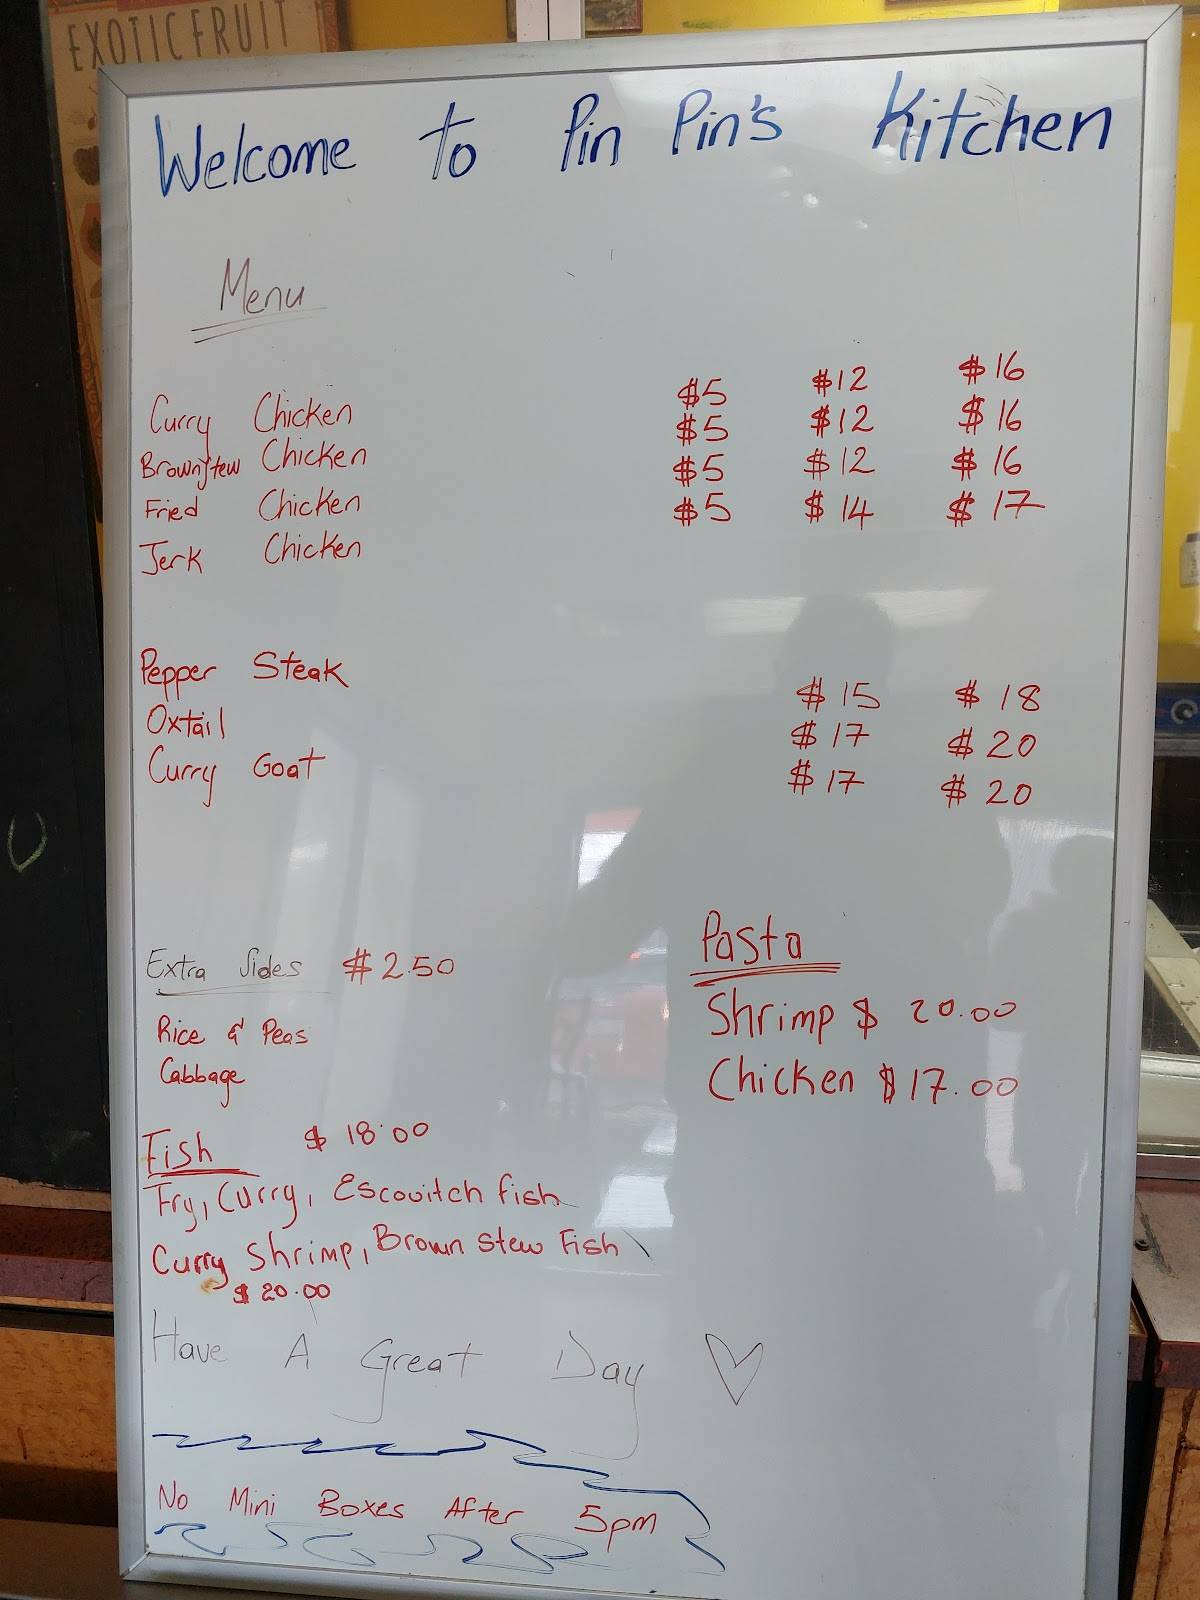 EXOTIC FRUIT
Welcome to Pin Pin's Kitchen
Menu
Curry Chicken $5 $12 $16
Brownstew Chicken $5 $12 $16
Fried Chicken $5 $12 $16
Jerk Chicken $5 $14 $17
Pepper Steak $15 $18
Oxtail $17 $20
Curry Goat $17 $20
Extra Sides $2.50
Rice & Peas
Cabbage
Pasta
Shrimp $ 20.00
Chicken $17.00
Fish $18.00
Fry, Curry, Escovitch fish
Curry Shrimp, Brown Stew Fish
$20.00
Have A Great Day
No Mini Boxes After 5pm